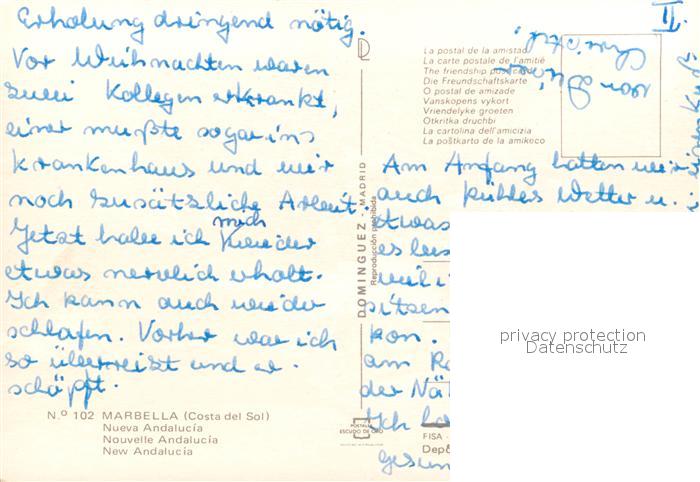 II.
Erholung dringend nötig.
Vor Weihnachten waren
zwei Kollegen erkrankt,
einer mußte sogar ins
Krankenhaus und wir
noch zusätzliche Arbeit.
Jetzt habe ich mich wieder
etwas nervlich erholt.
Ich kann auch wieder
schlafen. Vorher war ich
so überreizt und er-
schöpft.
Nº 102 MARBELLA (Costa del Sol)
Nueva Andalucía
Nouvelle Andalucía
New Andalucía
DOMINGUEZ - MADRID
Reproducción prohibida
POSTALES
ESCUDO DE ORO
La postal de la amistad
La carte postale de l'amitié
The friendship postcard
Die Freundschaftskarte
O postal de amizade
Vanskopens vykort
Vriendelyke groeten
Otkritka druchbi
La cartolina dell'amicizia
La poŝtkarto de la amikeco
von
Am Anfang hatten wir
auch kühles Wetter u.
etwas
es
weil
sitzen
kon.
am
der
Ich
gesun
FISA -
Dep
privacy protection
Datenschutz